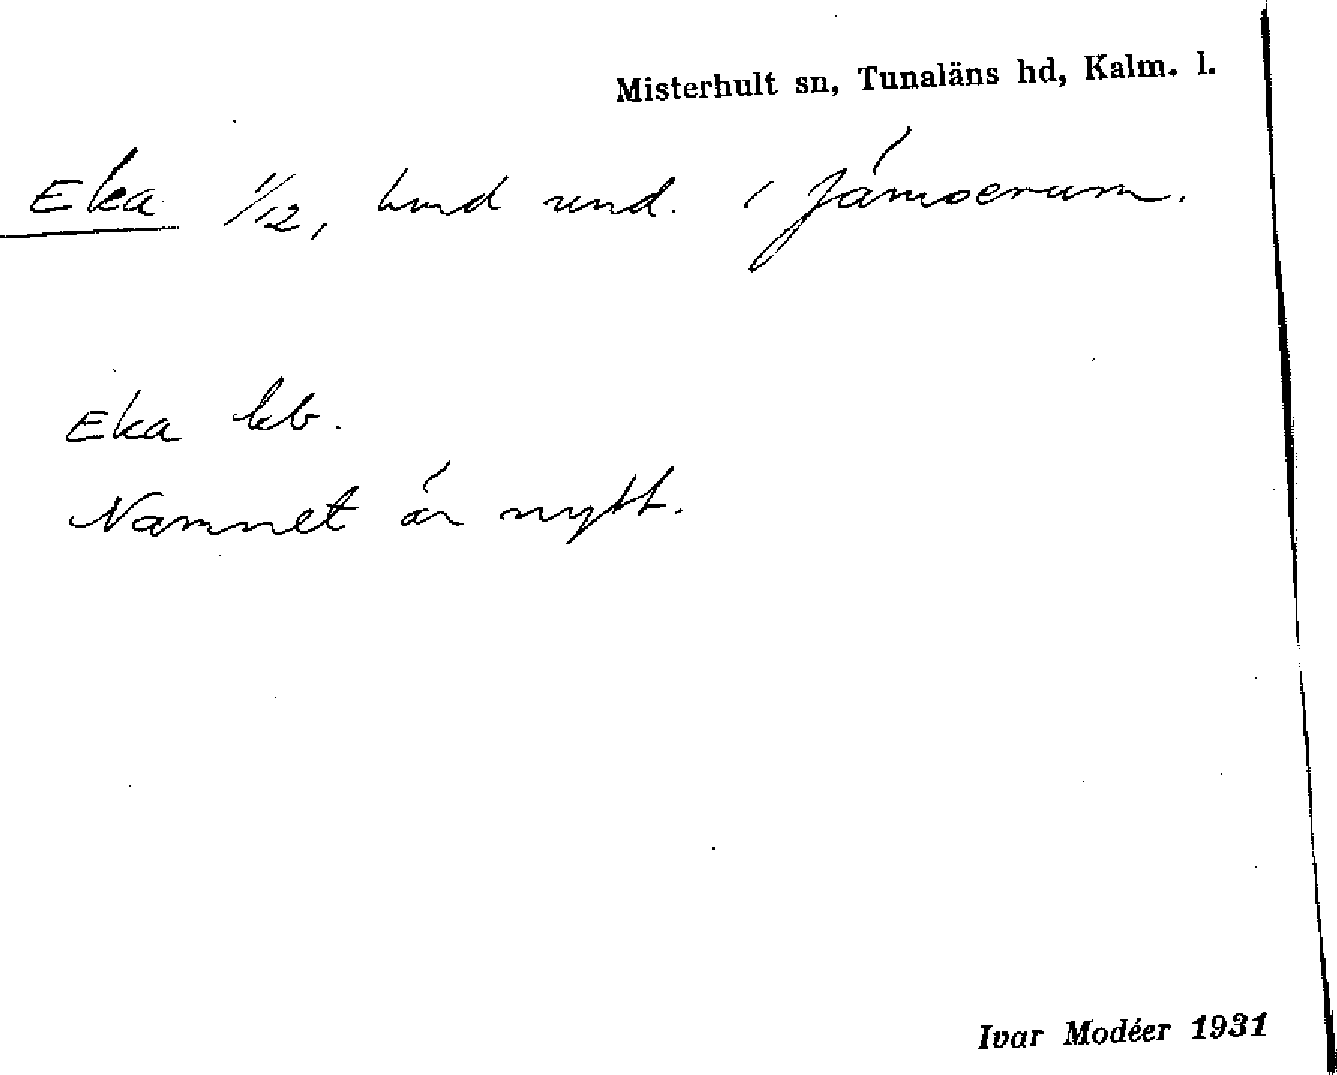 Misterhult sn, Tunaläns hd, Kalm. l.
Eka 1/12, und. i Jämserum.
Eka kb.
Namnet är nytt.
Ivar Modéer 1931